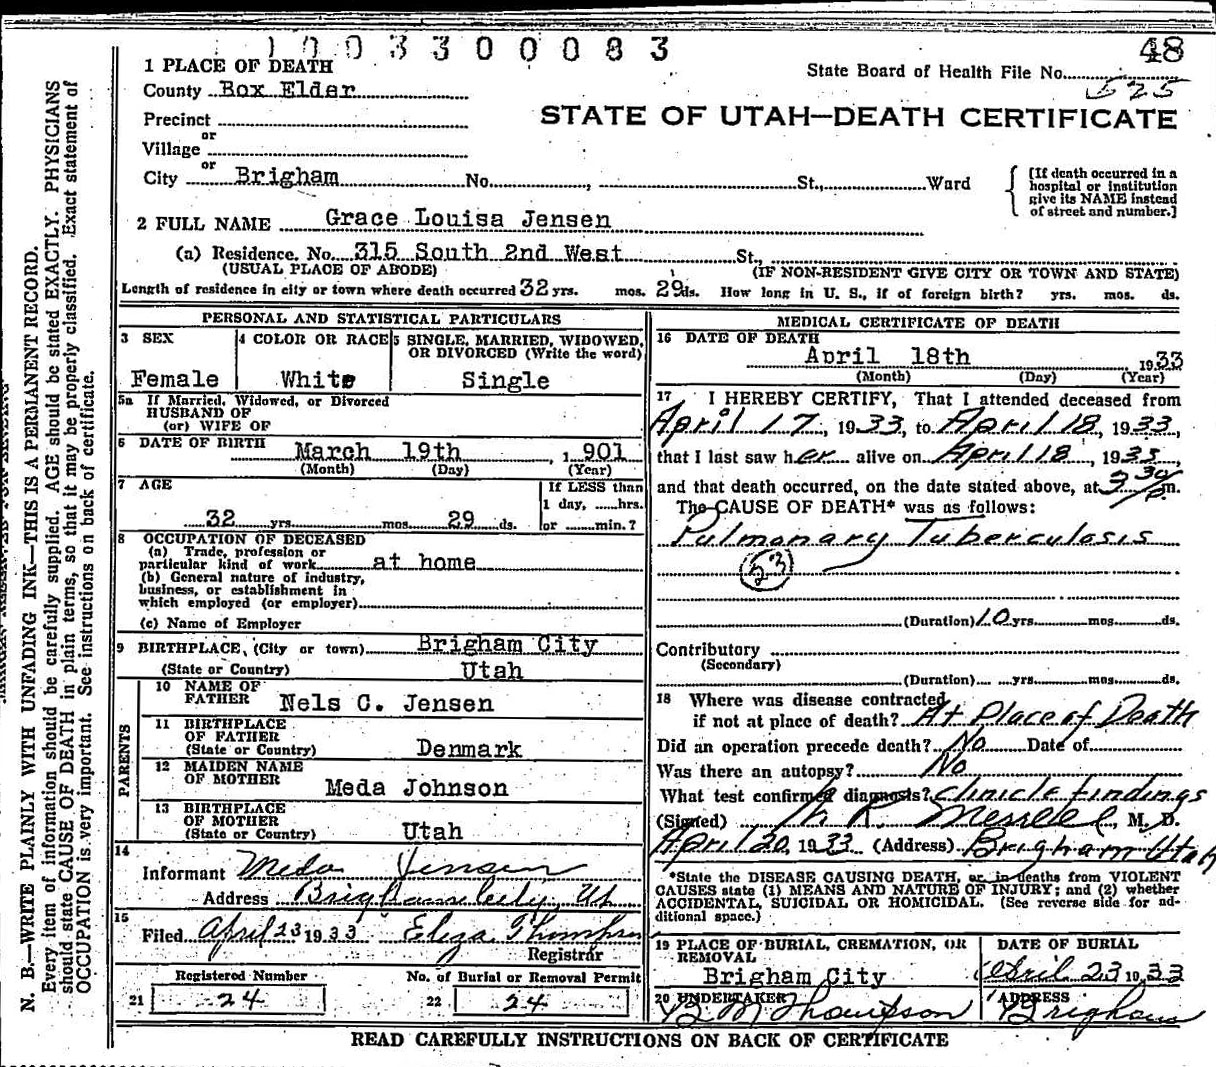 1003300083
48
1 PLACE OF DEATH
State Board of Health File No. 525
County Box Elder
STATE OF UTAH—DEATH CERTIFICATE
Precinct
or
Village
or
City Brigham No. , St., Ward
[If death occurred in a hospital or institution give its NAME instead of street and number.]
2 FULL NAME Grace Louisa Jensen
(a) Residence. No. 315 South 2nd West St.,
(USUAL PLACE OF ABODE) (IF NON-RESIDENT GIVE CITY OR TOWN AND STATE)
Length of residence in city or town where death occurred 32 yrs. mos. 29 ds. How long in U. S., if of foreign birth? yrs. mos. ds.
PERSONAL AND STATISTICAL PARTICULARS
3 SEX
Female
4 COLOR OR RACE
White
5 SINGLE, MARRIED, WIDOWED, OR DIVORCED (Write the word)
Single
5a If Married, Widowed, or Divorced
HUSBAND OF
(or) WIFE OF
6 DATE OF BIRTH March 19th , 1 901
(Month) (Day) (Year)
7 AGE
32 yrs. mos. 29 ds.
If LESS than
1 day, hrs.
or min.?
8 OCCUPATION OF DECEASED
(a) Trade, profession or
particular kind of work at home
(b) General nature of industry,
business, or establishment in
which employed (or employer)
(c) Name of Employer
9 BIRTHPLACE, (City or town) Brigham City
(State or Country) Utah
PARENTS
10 NAME OF
FATHER Nels C. Jensen
11 BIRTHPLACE
OF FATHER
(State or Country) Denmark
12 MAIDEN NAME
OF MOTHER Meda Johnson
13 BIRTHPLACE
OF MOTHER
(State or Country) Utah
14
Informant Meda Jensen
Address Brigham City, Ut
15
Filed April 23 1933 Eliza Thompson
Registrar
Registered Number
21 24
No. of Burial or Removal Permit
22 24
MEDICAL CERTIFICATE OF DEATH
16 DATE OF DEATH
April 18th 1933
(Month) (Day) (Year)
17 I HEREBY CERTIFY, That I attended deceased from
April 17, 1933, to April 18, 1933,
that I last saw her alive on April 18, 1933,
and that death occurred, on the date stated above, at 3 30 P m.
The CAUSE OF DEATH* was as follows:
Pulmonary Tuberculosis
53
(Duration) 10 yrs. mos. ds.
Contributory
(Secondary)
(Duration) yrs. mos. ds.
18 Where was disease contracted
if not at place of death? At Place of Death
Did an operation precede death? No Date of
Was there an autopsy? No
What test confirmed diagnosis? Clinicle findings
(Signed) R. Merrell, M. D.
April 20, 1933 (Address) Brigham Utah
*State the DISEASE CAUSING DEATH, or in deaths from VIOLENT
CAUSES state (1) MEANS AND NATURE OF INJURY; and (2) whether
ACCIDENTAL, SUICIDAL OR HOMICIDAL. (See reverse side for ad-
ditional space.)
19 PLACE OF BURIAL, CREMATION, OR
REMOVAL
Brigham City
DATE OF BURIAL
April 23 1933
20 UNDERTAKER
B M Thompson
ADDRESS
Brigham
READ CAREFULLY INSTRUCTIONS ON BACK OF CERTIFICATE
N. B.—WRITE PLAINLY WITH UNFADING INK—THIS IS A PERMANENT RECORD.
Every item of information should be carefully supplied. AGE should be stated EXACTLY. PHYSICIANS
should state CAUSE OF DEATH in plain terms, so that it may be properly classified. Exact statement of
OCCUPATION is very important. See instructions on back of certificate.